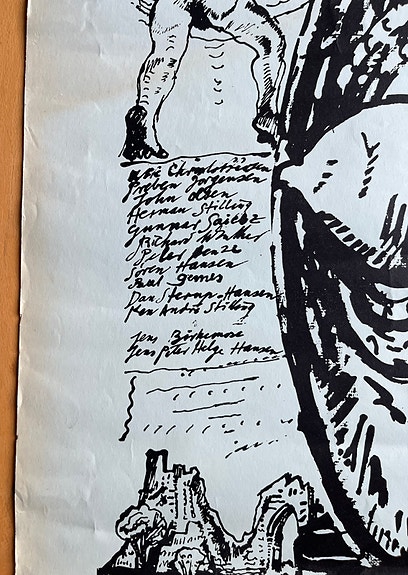 Ubi Christoffersen
Preben Jørgensen
John Olsen
Herman Stilling
Gunnar Saietz
Richard Winther
Peter
Sören Hansen
Paul Gernes
Dan Sterup-Hansen
Ken André Stilling
Jens Birkemose
Jens Peter Helge Hansen